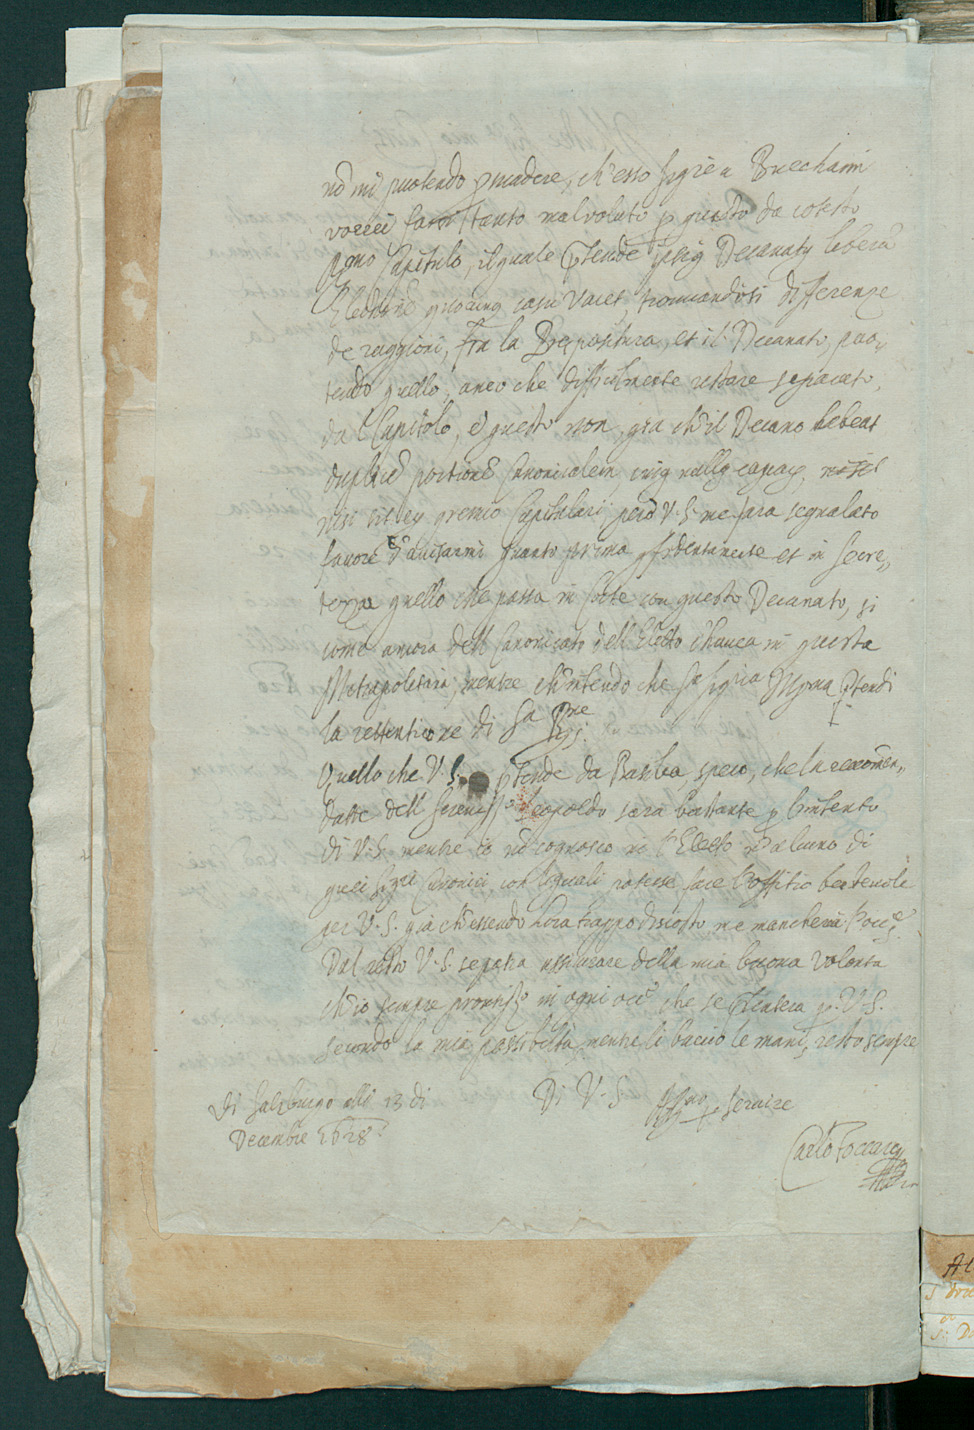 nō mi puotendo ꝑsuadere, ch'esso Sigre a Buechaim
vorrei farsi tanto malvoluto ꝑ questo da cotesto
Capitulo, il quale ꝓtende Decanatus liberā
quocunq casu vacet, trouuandosi differenze
de raggioni, fra la Prepositura, et il Decanato, puo,,
tendo quello, anco che difficilmente restare separato,
da l Capitolo, e questo non, gia ch'il Decano habeat
duplicē portionē Canonicalem, cuiq nullq capax,
nisi sit ex gremio Capitulari però V.S. me fara segnalato
fauore d'auisarmi quanto prima cōfidentamente et in secre,,
tezza quello che passa in fatto con questo Decanato, si
come ancora dell Canonicato dell'Eletto ch'hauea in questa
Metropolitana, mentre ch'intendo che Sa Sigria ꝓtendi
la rettentione di Sa
Quello che V.S. ꝓtende da Passau spero, che la recomēn,,
datte dell Serenisso Leopoldo sara bastante ꝑ l'intento
di V.S. mentre io nō cognosco ne l'Eletto ne alcuno di
quei Sigri Canonici, con liquali potesse fare l'offitio beneuole
per V.S. gia ch'essendo hora troppo discosto me manchera l'occne.
Dal resto V.S. se potra assicurare della mia buona volonta
ch'io sempre prontisso in ogni occe che se ꝓsentera ꝑ V.S.
secondo la mia possibilta, mentre li baccio le mani, resto sempre
Di Salzburgo alli 13 di
Decembre 1628.
Di V.S. seruire
Carlo